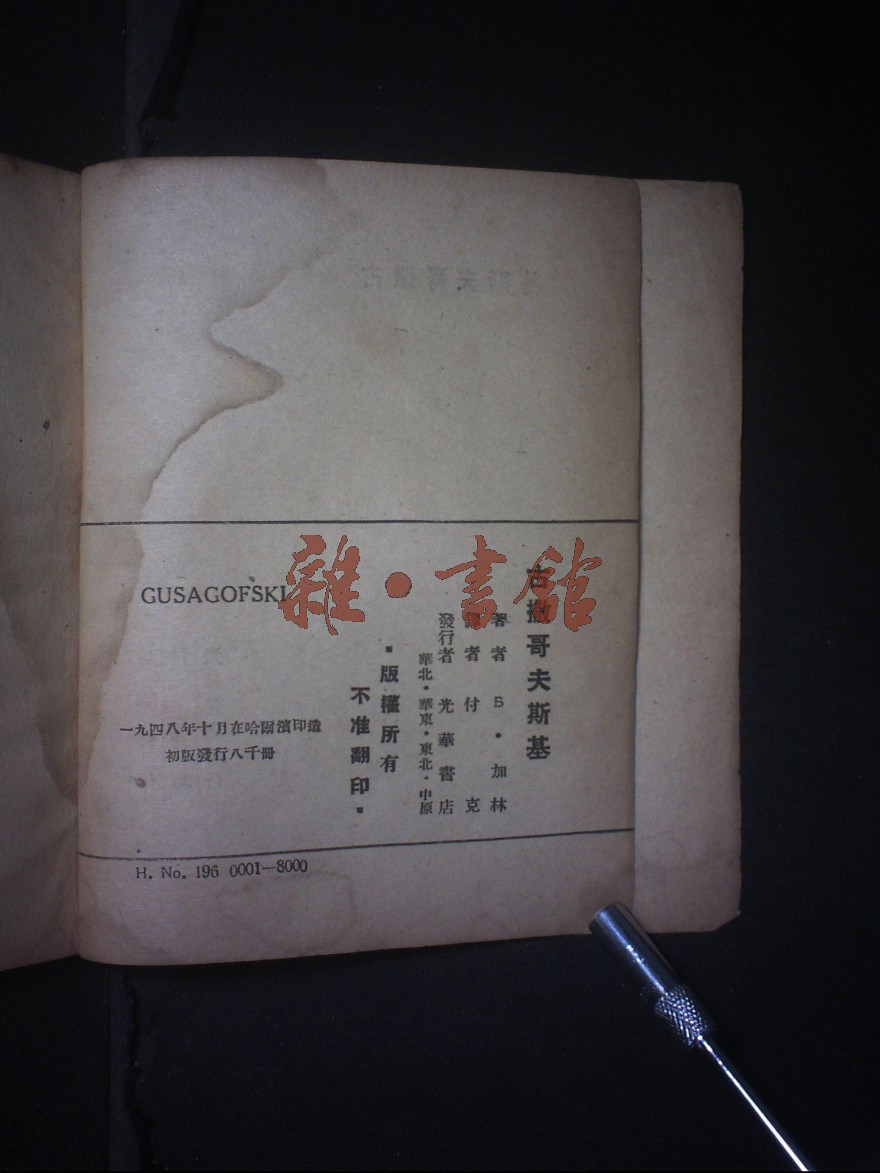 古撒哥夫斯基
著者 Б·加林
譯者 付克
發行者 光華書店
華北·華東·東北·中原
·版權所有
不准翻印·
GUSAGOFSKI
一九四八年十月在哈爾濱印造
初版發行八千冊
H. No. 196 0001—8000
雜·書館